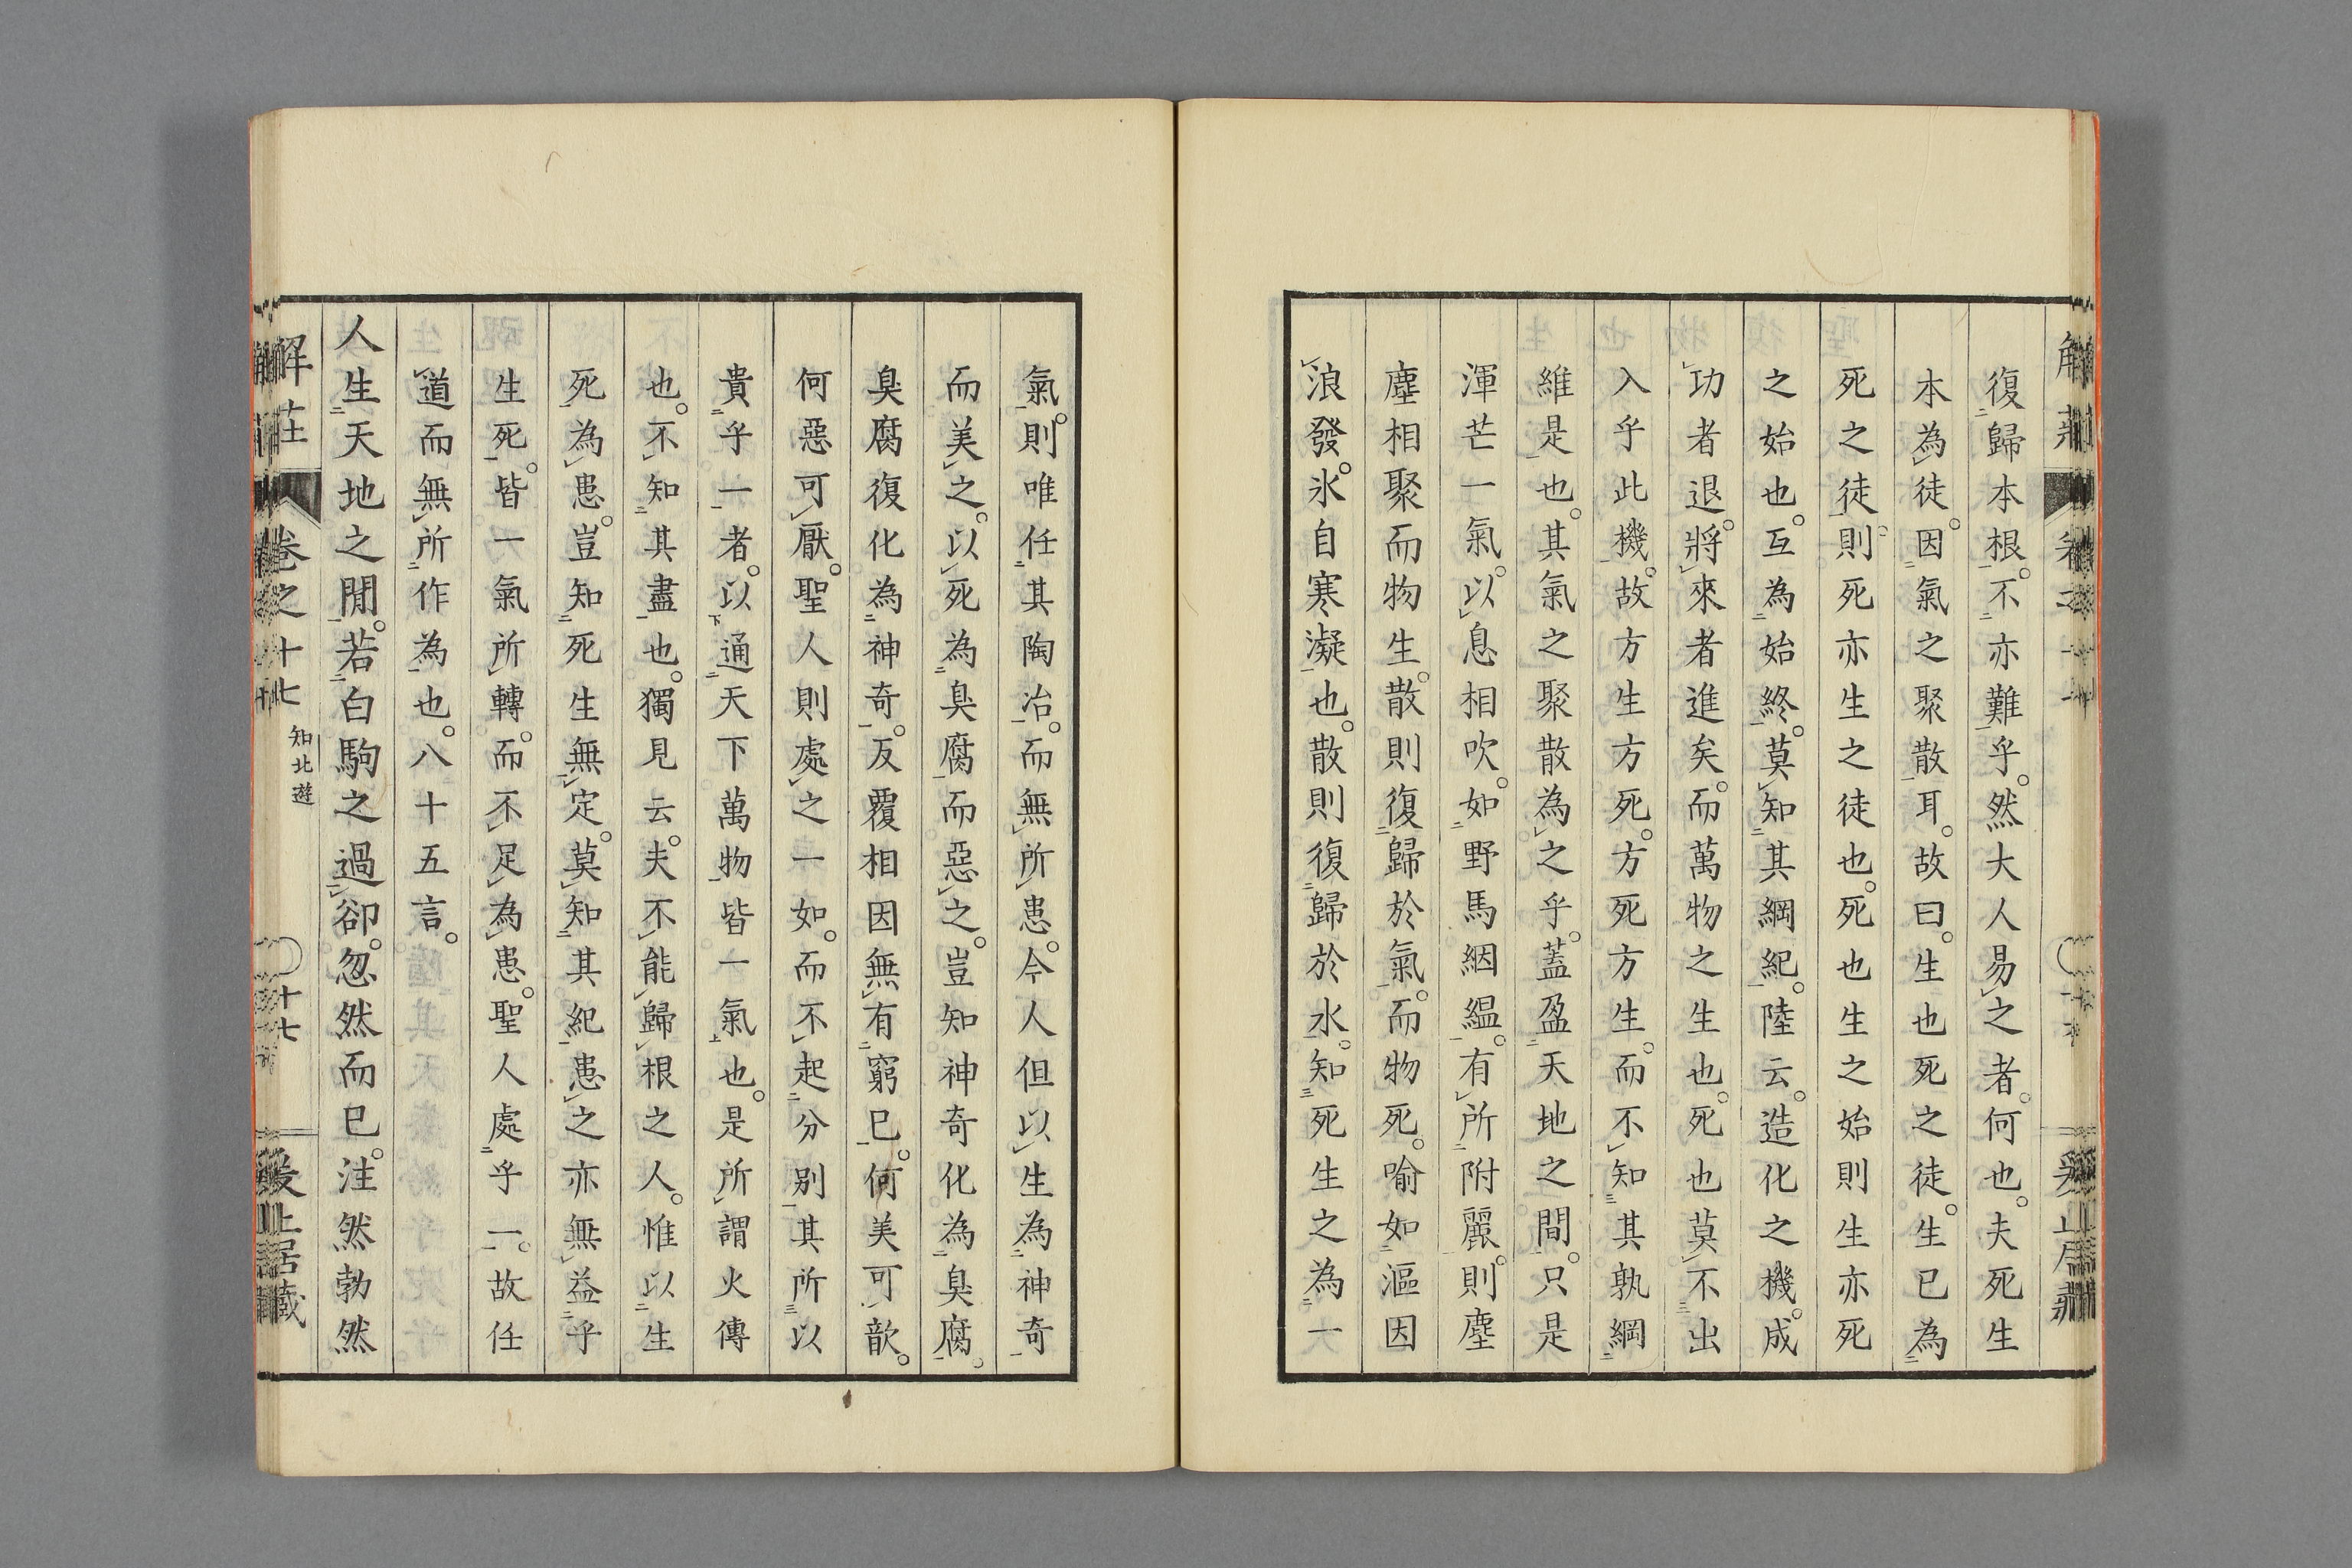 復歸本根。不亦難乎。然大人易之者。何也。夫死生
本為徒。因氣之聚散耳。故曰。生也死之徒。生已為
死之徒。則死亦生之徒也。死也生之始則生亦死
之始也。互為始終。莫知其綱紀。陸云。造化之機。成
功者退。將來者進矣。而萬物之生也。死也莫不出
入乎此機。故方生方死。方死方生。而不知其孰綱
維是也。其氣之聚散為之乎。蓋盈天地之間。只是
渾芒一氣。以息相吹。如野馬絪縕。有所附麗。則塵
塵相聚而物生。散則復歸於氣。而物死。喻如漚因
浪發。氷自寒凝也。散則復歸於水。知死生之為一
氣。則唯任其陶冶。而無所患。今人但以生為神奇
而美之。以死為臭腐而惡之。豈知神奇化為臭腐。
臭腐復化為神奇。反覆相因無有窮已。何美可歆。
何惡可厭。聖人則處之一如。而不起分別其所以
貴乎一者。以通天下萬物皆一氣也。是所謂火傳
也。不知其盡也。獨見云。夫不能歸根之人。惟以生
死為患。豈知死生無定。莫知其紀患之亦無益乎
生死。皆一氣所轉。而不足為患。聖人處乎一。故任
道而無所作為也。八十五言。
人生天地之閒。若白駒之過卻。忽然而已。注然勃然
解莊
卷之十七
知北遊
十七